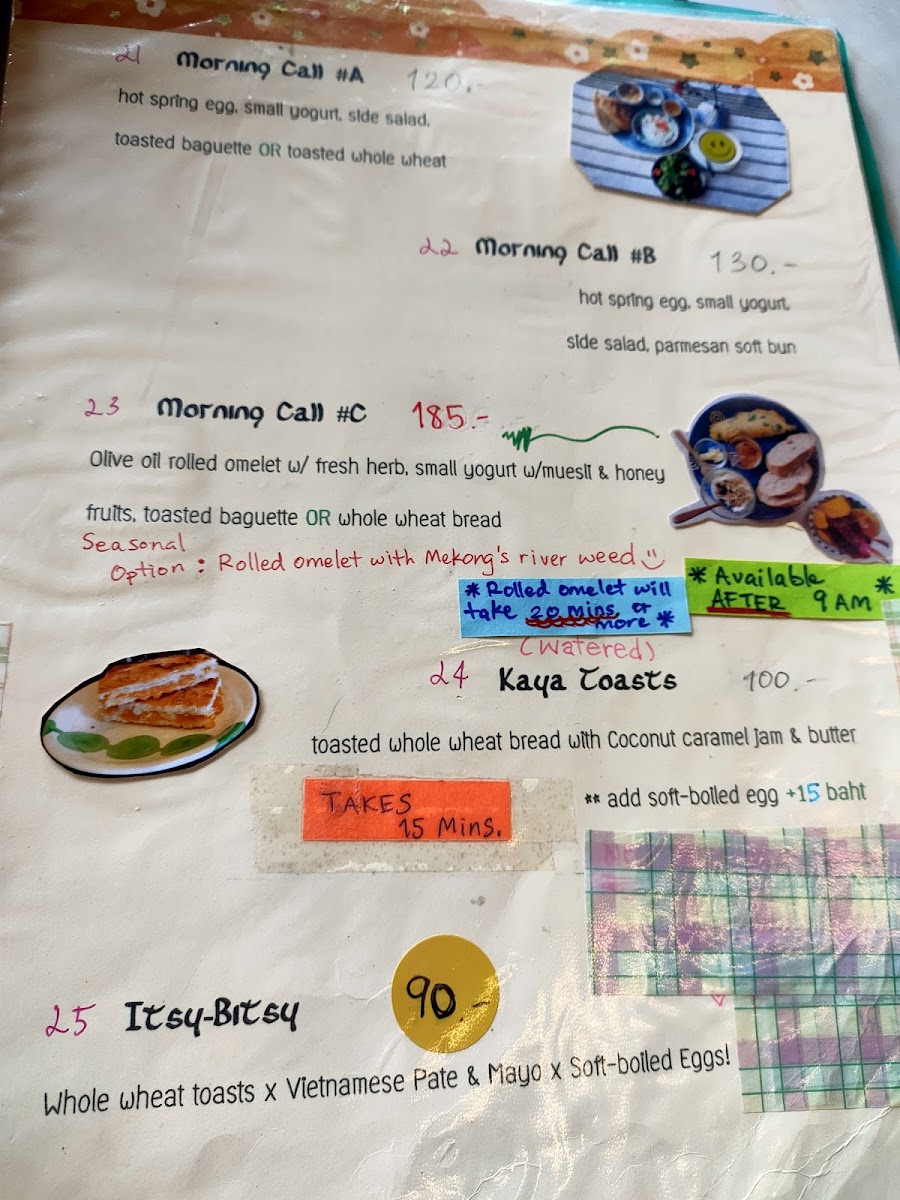 21 Morning Call #A 120.-
hot spring egg, small yogurt, side salad,
toasted baguette OR toasted whole wheat
22 Morning Call #B 130.-
hot spring egg, small yogurt,
side salad, parmesan soft bun
23 Morning Call #C 185.-
Olive oil rolled omelet w/ fresh herb, small yogurt w/muesli & honey
fruits, toasted baguette OR whole wheat bread
Seasonal
Option : Rolled omelet with Mekong's river weed
* Rolled omelet will
take 20 mins or
more *
* Available *
AFTER 9 AM
(Watered)
24 Kaya Toasts 100.-
toasted whole wheat bread with Coconut caramel jam & butter
** add soft-boiled egg +15 baht
TAKES
15 Mins.
25 Itsy-Bitsy 90.-
Whole wheat toasts x Vietnamese Pate & Mayo x Soft-boiled Eggs!